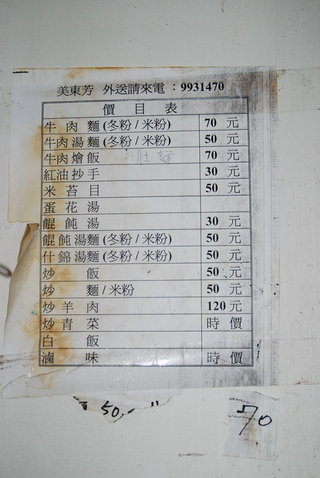 美東芳 外送請來電：9931470
價目表
牛肉麵(冬粉/米粉) 70元
牛肉湯麵(冬粉/米粉) 50元
牛肉燴飯 70元
紅油抄手 30元
米苔目 50元
蛋花湯
餛飩湯 30元
餛飩湯麵(冬粉/米粉) 50元
什錦湯麵(冬粉/米粉) 50元
炒飯 50元
炒麵/米粉 50元
炒羊肉 120元
炒青菜 時價
白飯
滷味 時價
50
70